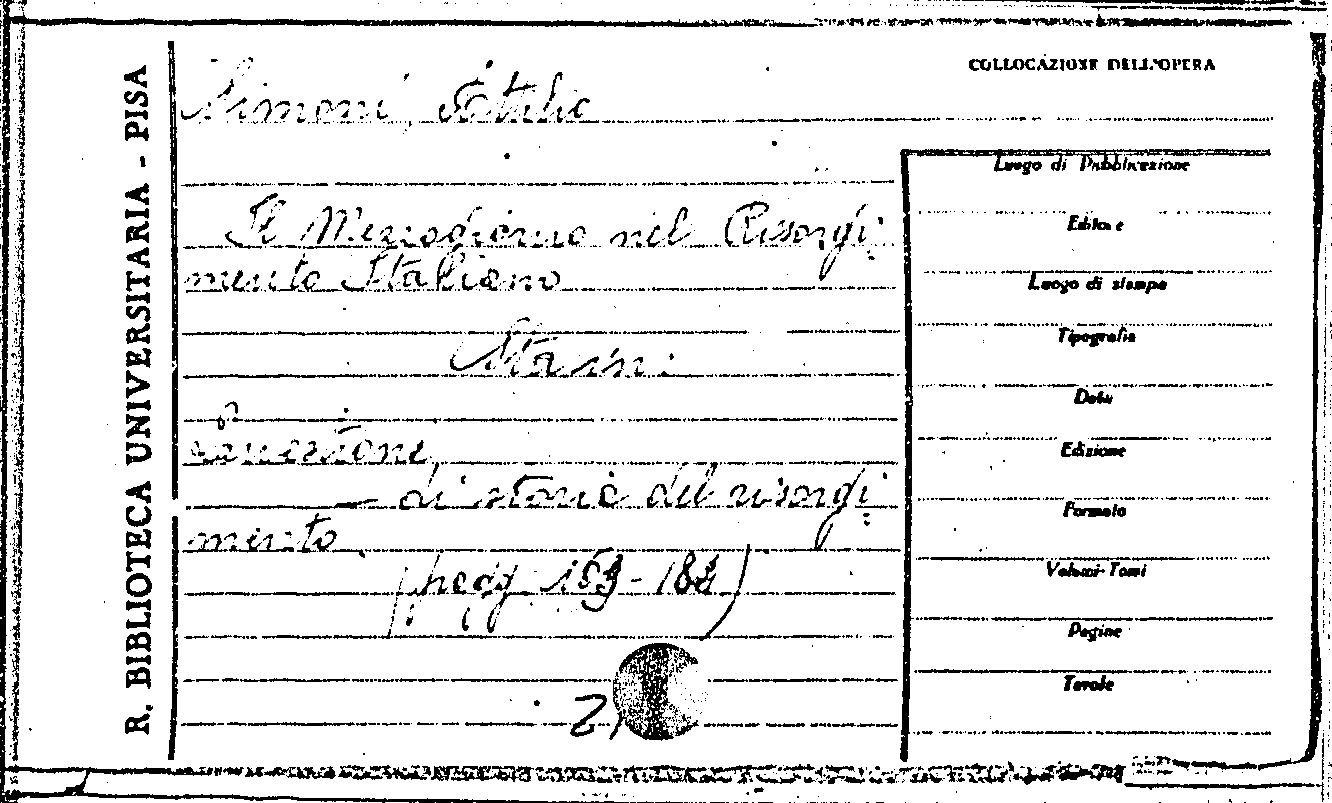 R. BIBLIOTECA UNIVERSITARIA - PISA
Simoni, Attilio
Il Mezzogiorno nel Risorgi-
mento Italiano
Sta in:
di storia del risorgi-
mento
(pagg. 153-184)
COLLOCAZIONE DELL'OPERA
Luogo di Pubblicazione
Editore
Luogo di stampa
Tipografia
Data
Edizione
Formato
Volumi-Tomi
Pagine
Tavole